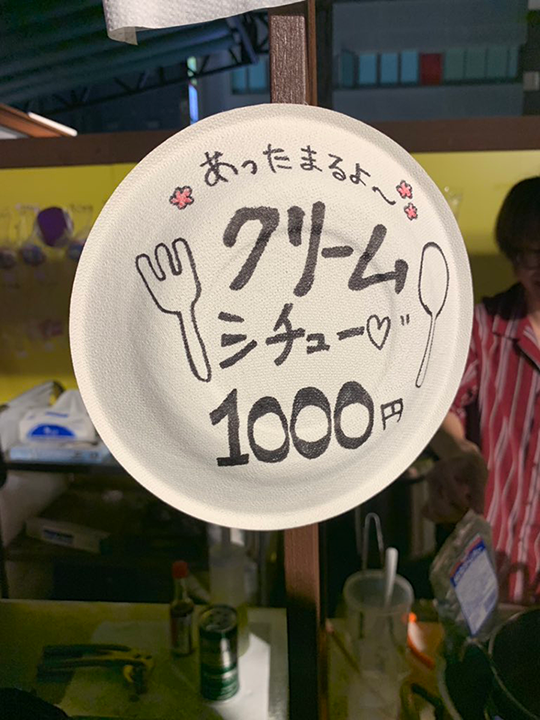 あったまるよ～
クリーム
シチュー♡"
1000円